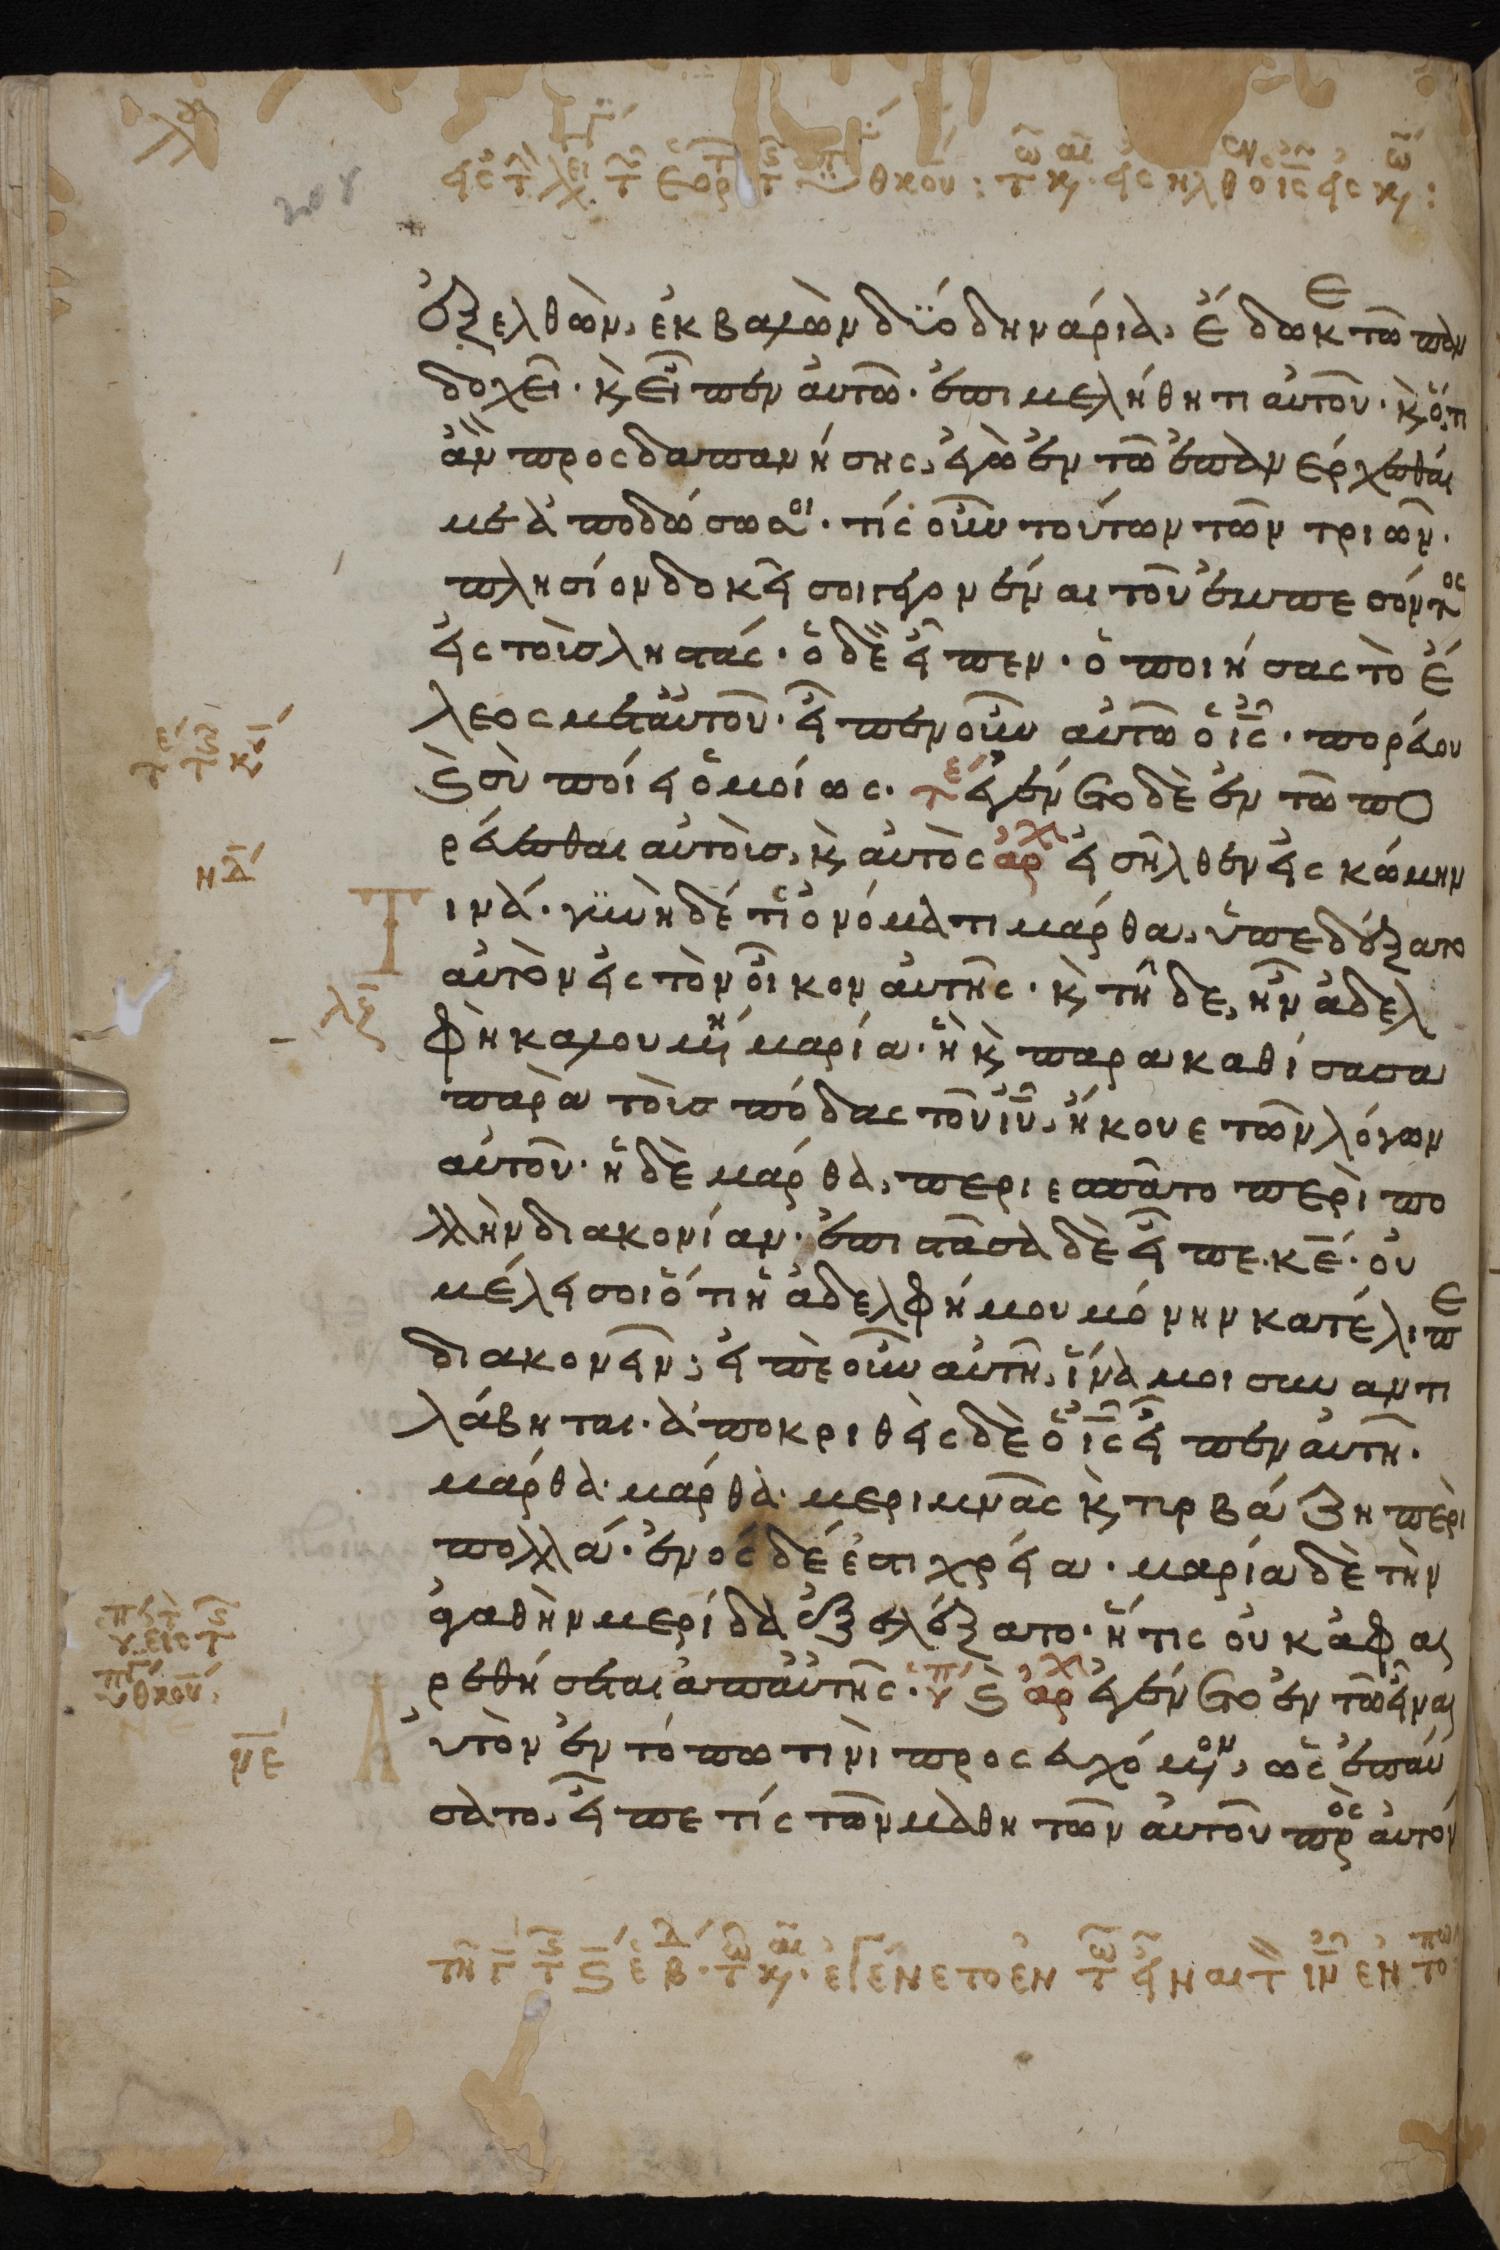 ἐξελθὼν, ἐκβαλὼν δύο δηνάρια, ἔδωκε τῶ παν
δοχεῖ· κ εἶπεν αὐτῶ· ἐπιμελήθητι αὐτοῦ· κ ὅ,τι
ἂν προσδαπανήσης, ἐγὼ ἐν τῶ ἐπανέρχεσθαί
με ἀποδώσω σοι· τίς οὖν τούτων τῶν τριῶν·
πλησίον δοκεῖ σοι γεγονέναι τοῦ ἐμπεσόντος
εἰς τοὺς ληστάς· ὁ δὲ εἶπεν· ὁ ποιήσας τὸ ἔ
λεος μετ αὐτοῦ· εἶπεν οὖν αὐτῶ ὁ ις· πορεύου
κ σὺ ποίει ὁμοίως· τε ἐγένετο δὲ ἐν τῶ πο
ρεύεσθαι αὐτοὺς, κ αὐτὸς αρχ εἰσῆλθεν εἰς κώμην
τινά· γυνὴ δέ τις ὀνόματι μάρθα, ὑπεδέξατο
αὐτὸν εἰς τὸν οἶκον αὐτῆς· κ τῆ δε, ἦν ἀδελ
φὴ καλουμένη μαρία· ἣ κ παρακαθίσασα
παρὰ τοὺς πόδας τοῦ ιυ, ἤκουε τῶν λόγων
αὐτοῦ· ἡ δὲ μάρθα, περιεσπᾶτο περὶ πο
λλὴν διακονίαν· ἐπιστᾶσα δὲ εἶπε· κε· οὐ
μέλει σοι ὅτι ἡ ἀδελφή μου μόνην κατέλιπε
διακονεῖν; εἰπὲ οὖν αὐτῆ, ἵνα μοι συναντι
λάβηται· ἀποκριθεὶς δὲ ὁ ις εἶπεν αὐτῆ·
μάρθα· μάρθα· μεριμνᾶς κ τυρβάζη περὶ
πολλά· ἑνὸς δέ ἐστι χρεία· μαρία δὲ τὴν
ἀγαθὴν μερίδα ἐξελέξατο· ἥτις οὐκ ἀφαι
ρεθήσεται ἀπ αὐτῆς· κ αρχ ἐγένετο ἐν τῶ εἶναι
αὐτὸν ἐν τόπω τινὶ προσευχόμενον, ὡς ἐπαύ
σατο, εἶπέ τίς τῶν μαθητῶν αὐτοῦ πρὸς αὐτόν